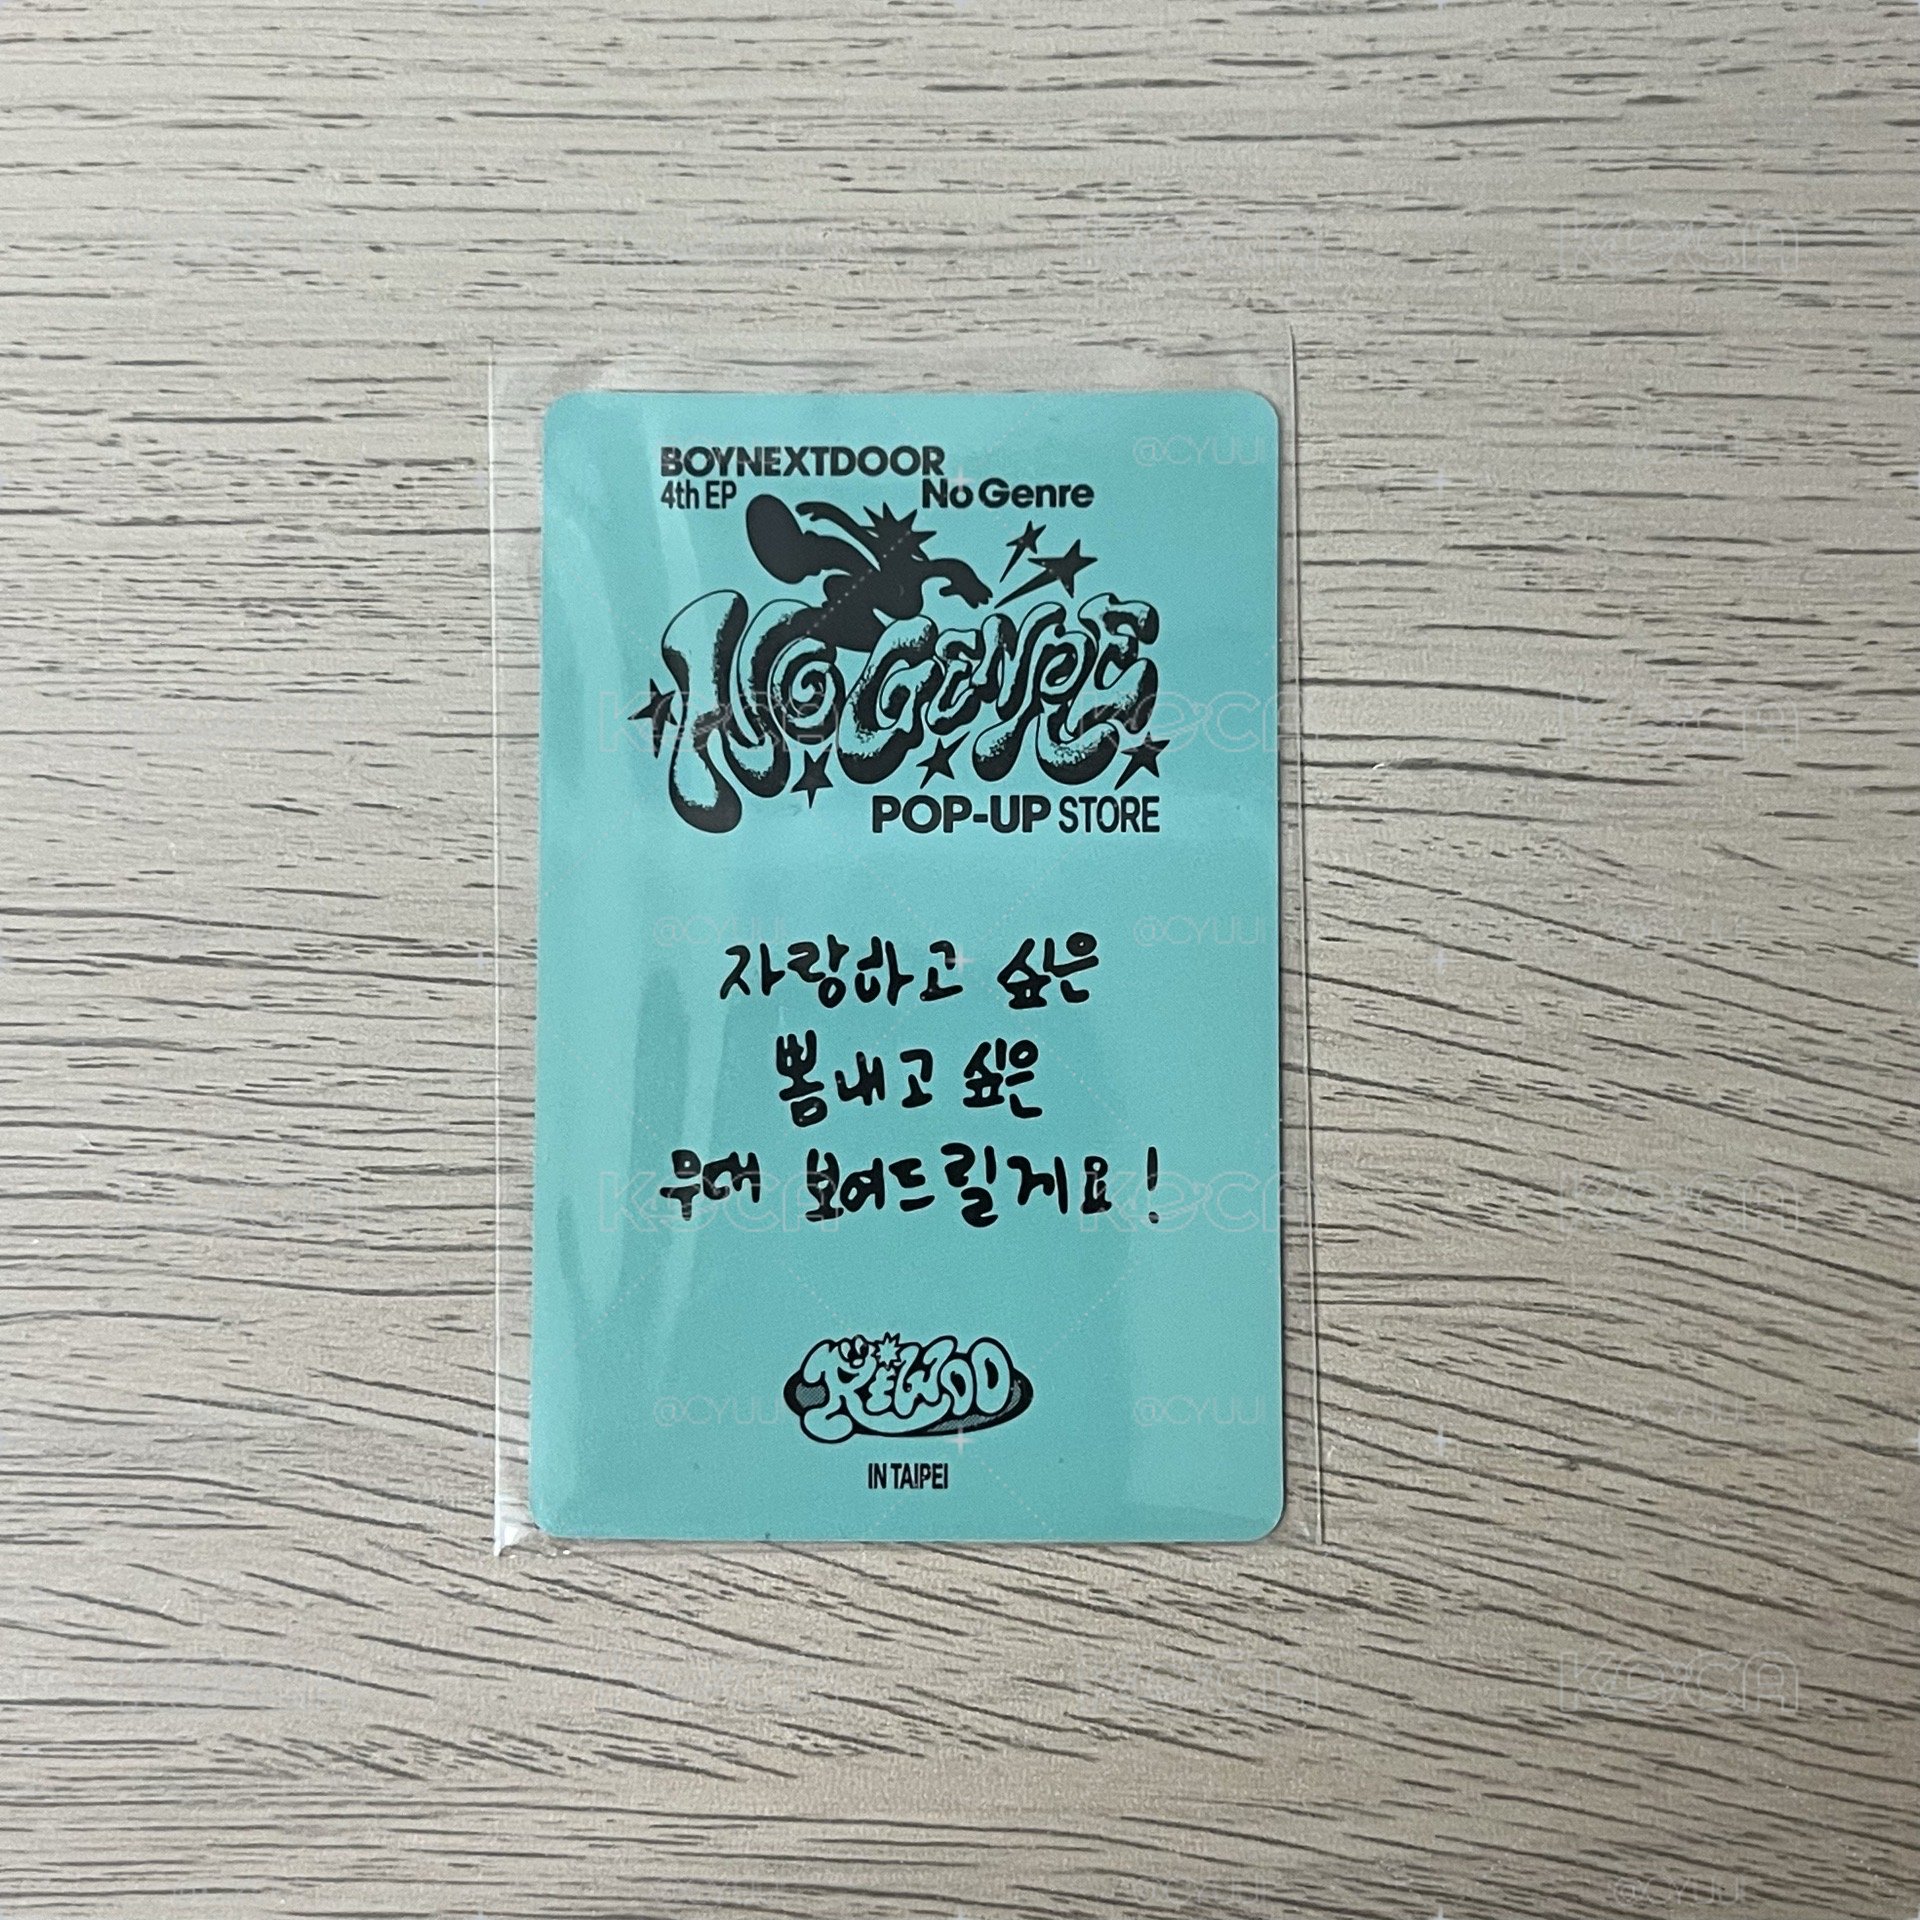 BOYNEXTDOOR
4th EP No Genre
NO GENRE
POP-UP STORE
자랑하고 싶은
뽐내고 싶은
무대 보여드릴게요!
IN TAIPEI
@CYUJJ
KOCA